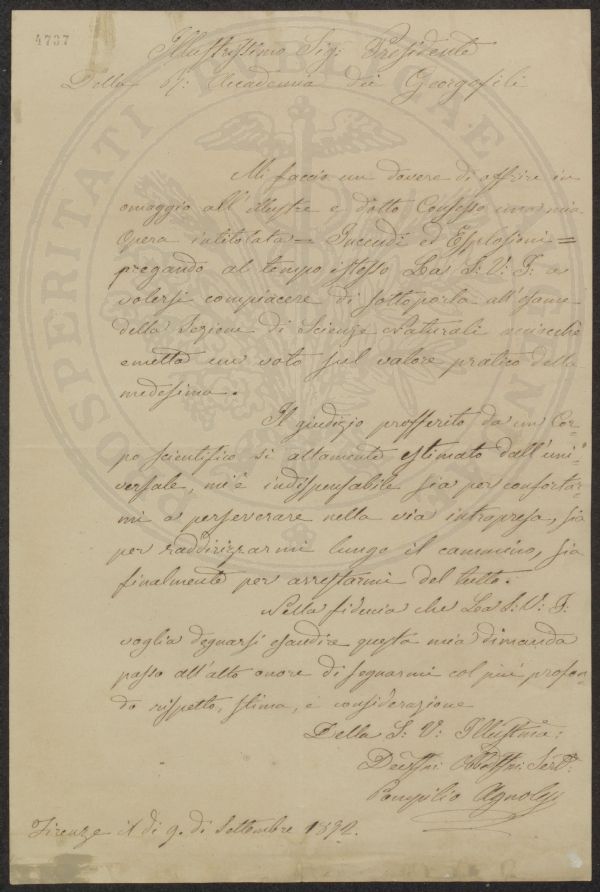 4737
Illustrissimo Sig: Presidente
Della R: Accademia dei Georgofili
Mi faccio un dovere di offrire in
omaggio all'illustre e dotto Consesso una mia
Opera intitolata = Incendi ed Esplosioni =
pregando al tempo istesso La S: V: I: a
volersi compiacere di sottoporla all'esame
della Sezione di Scienze Naturali acciocchè
emetta un voto sul valore pratico della
medesima.
Il giudizio profferito da un Cor-
po scientifico sì altamente estimato dall'uni-
versale, m'è indispensabile sia per confortar-
mi a perseverare nella via intrapresa, sia
per raddirizzarmi lungo il cammino, sia
finalmente per arrestarmi del tutto.
Nella fiducia che La S: V: I:
voglia degnarsi esaudire questa mia dimanda
passo all'alto onore di segnarmi col più profon-
do rispetto, stima, e considerazione
Della S: V: Illustma:
Devssmo Obbssmo: Servo:
Pompilio Agnolesi
Firenze il dì 9. di Settembre 1892.
PROSPERITATI PUBLICAE AUGENDAE